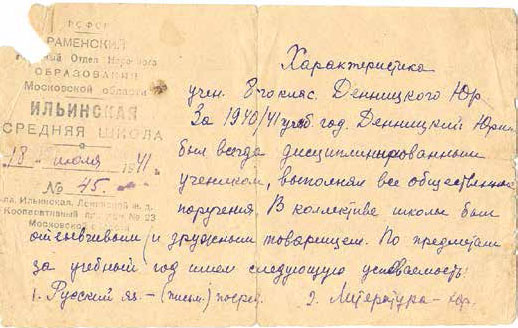 РСФСР
РАМЕНСКИЙ
Отдел Народного
ОБРАЗОВАНИЯ
Московской области
ИЛЬИНСКАЯ
СРЕДНЯЯ ШКОЛА
18 июля 1941
№ 45.
Ильинская, Ленинской ж. д.
Кооперативный № 23
Московской
Характеристика
учен. 8го клас. Денницкого Юр.
За 1940/41 учеб. год. Денницкий Юрий
был всегда дисциплинированным
учеником, выполнял все общественные
поручения. В коллективе школы был
отзывчивым и дружным товарищем. По предметам
за учебный год имел следующую успеваемость:
1. Русский яз. – (письм.) посред. 2. Литература – хор.